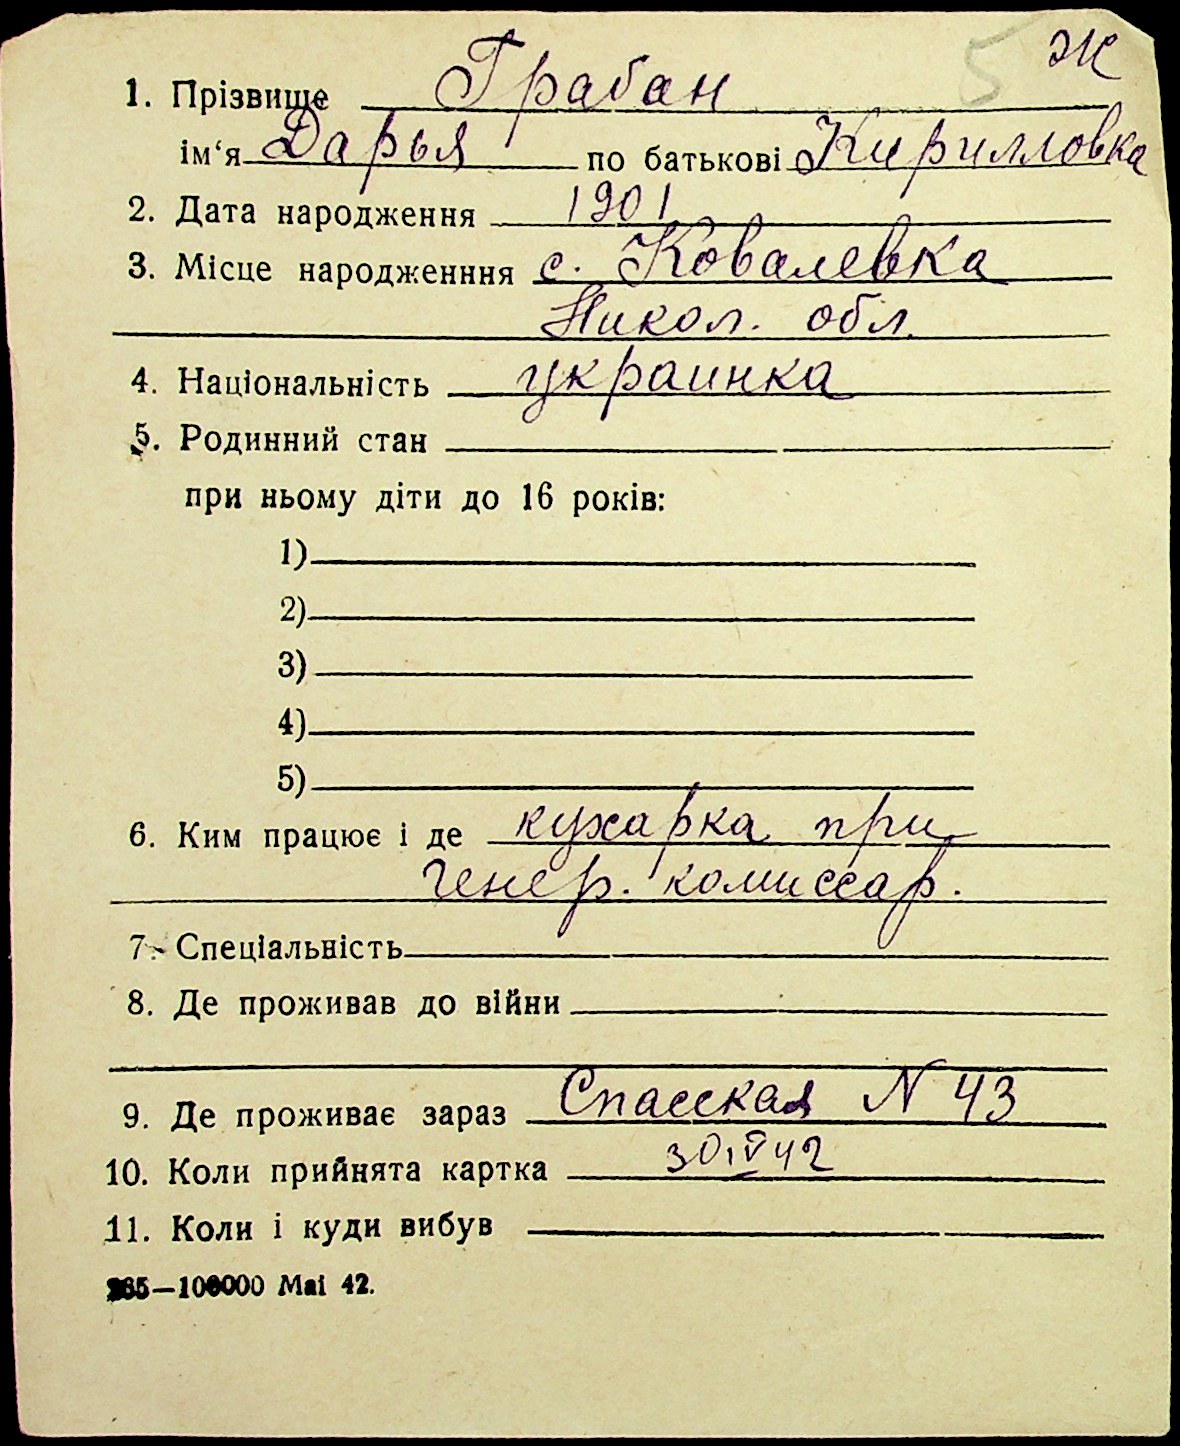 5 Ж
1. Прізвище Грабан
ім‘я Дарья по батькові Кирилловка
2. Дата народження 1901
3. Місце народженння с. Ковалевка
Никол. обл.
4. Національність украинка
5. Родинний стан
при ньому діти до 16 років:
1)
2)
3)
4)
5)
6. Ким працює і де кухарка при
генер. комиссар.
7. Спеціальність
8. Де проживав до війни
9. Де проживає зараз Спасская N 43
10. Коли прийнята картка 30.V 42
11. Коли і куди вибув
265—100000 Маі 42.